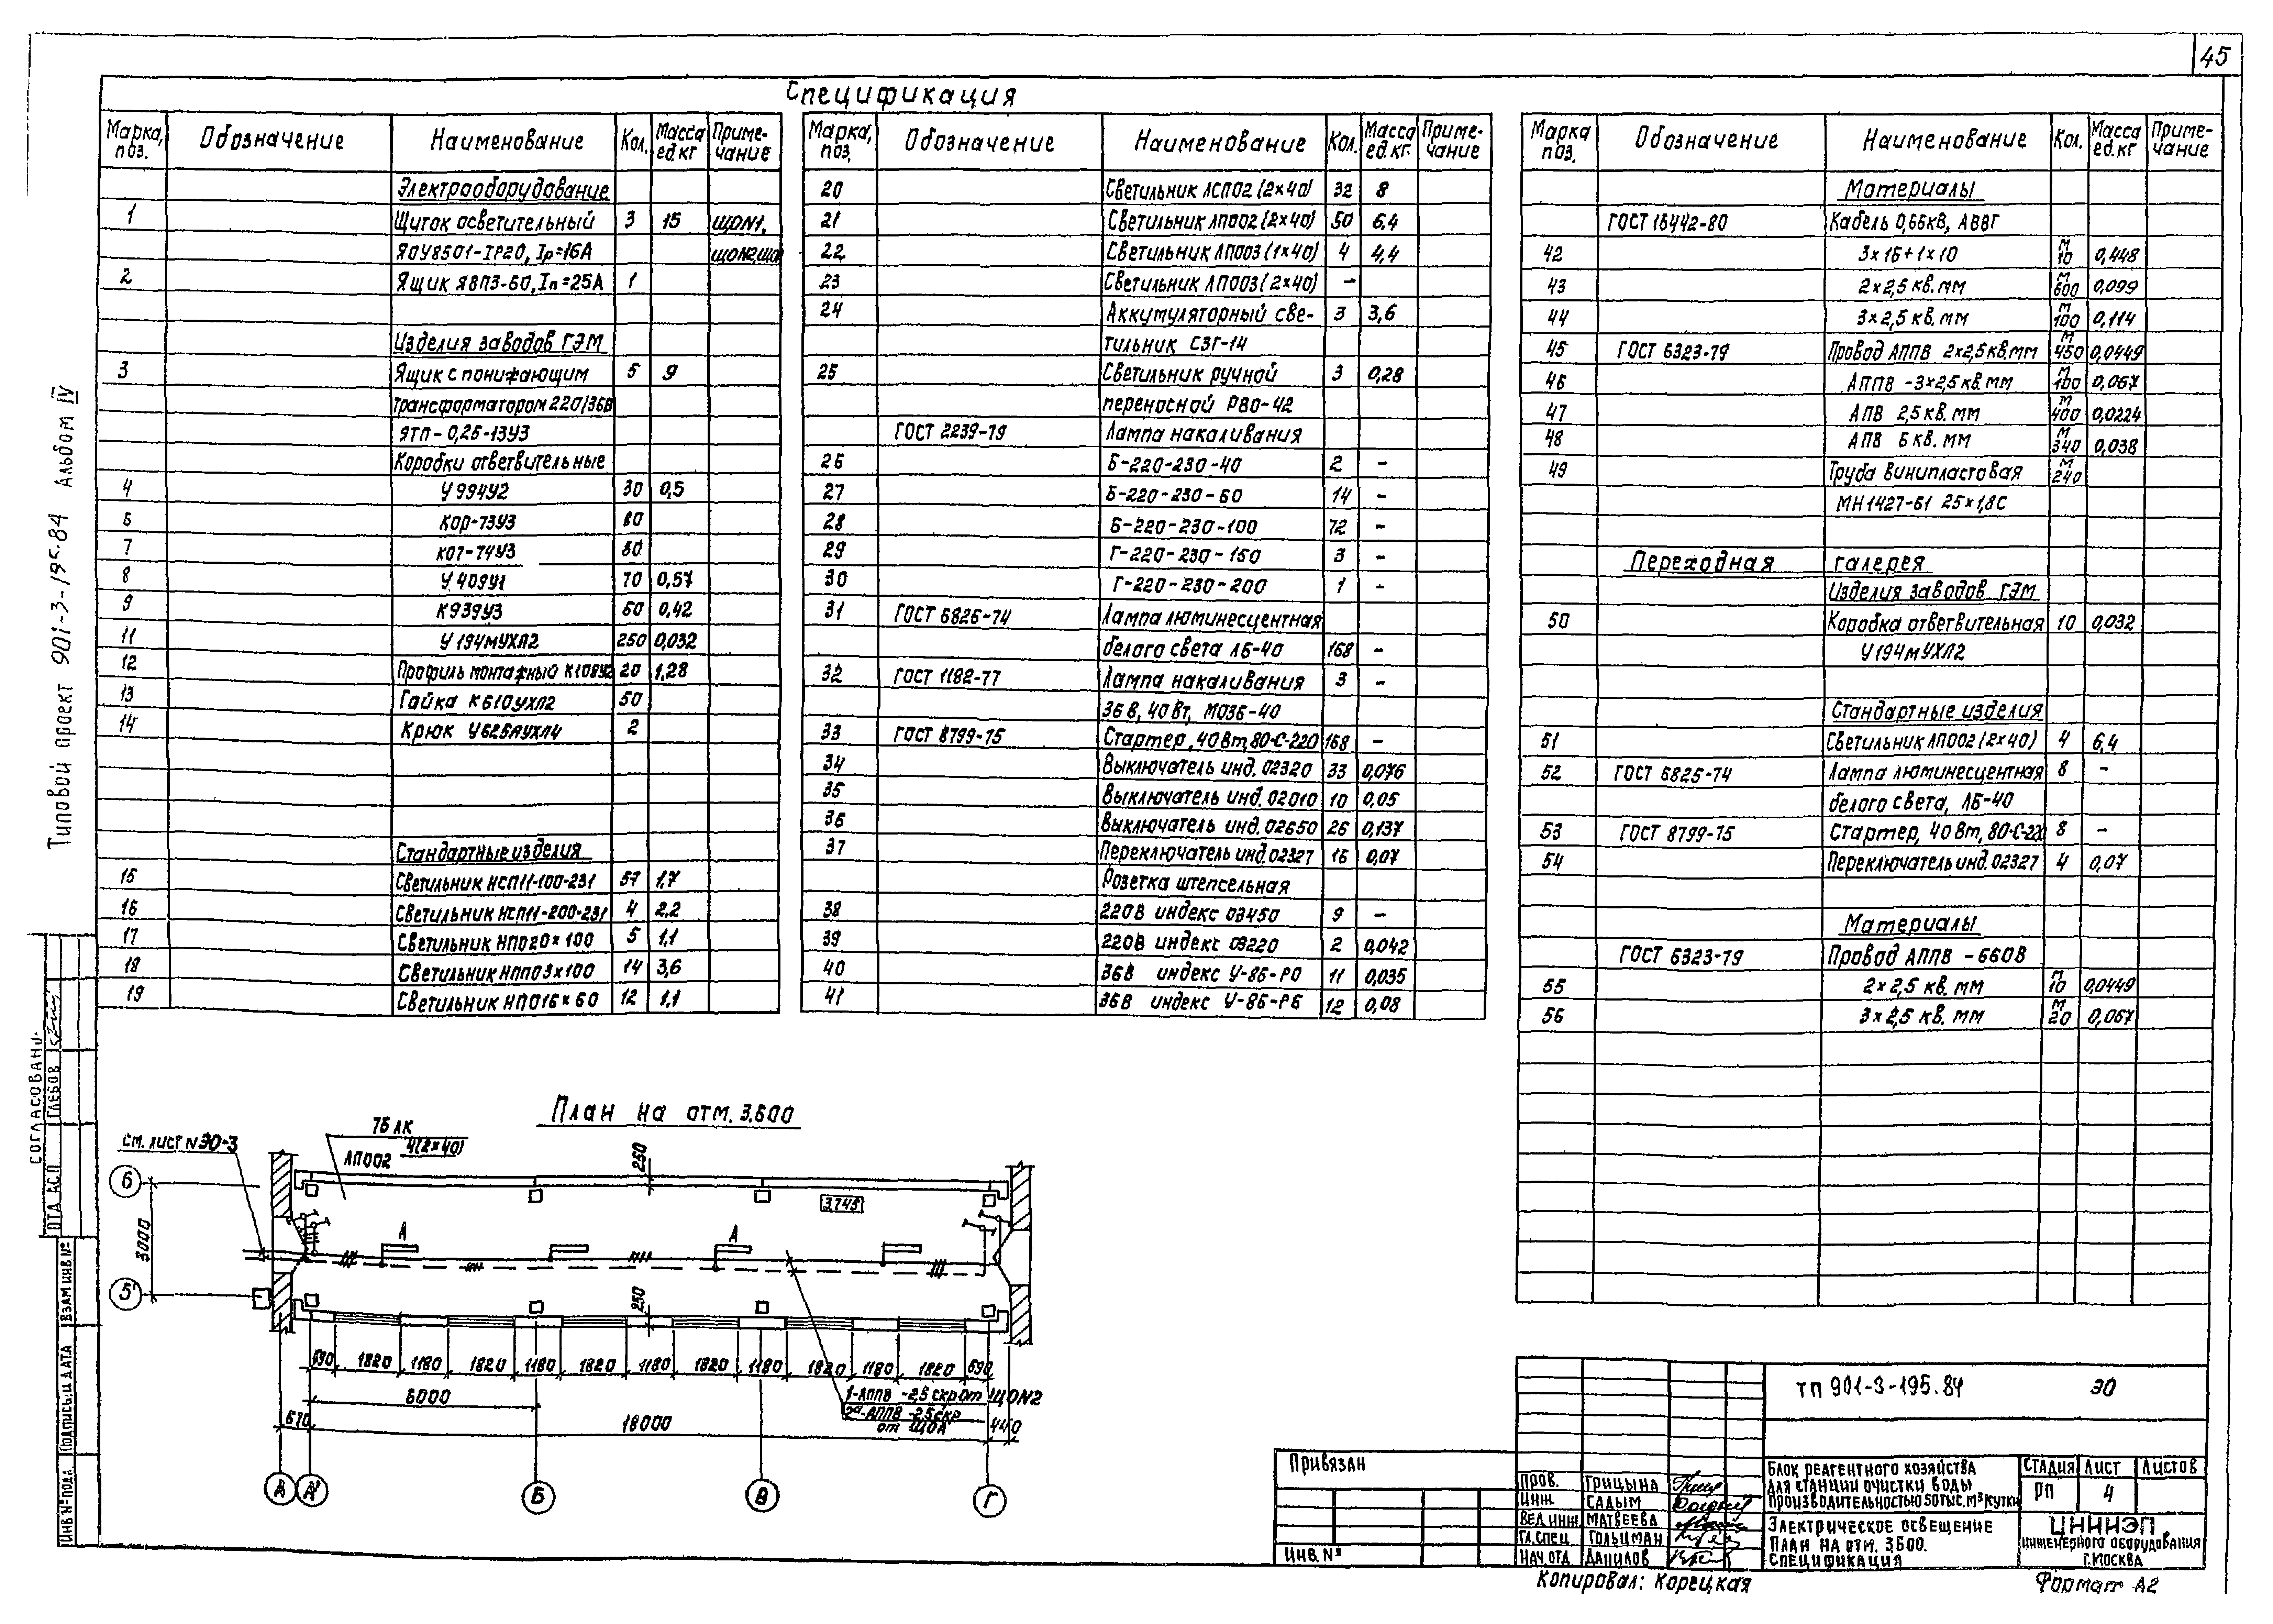 45
Спецификация
Марка, поз. Обозначение Наименование Кол. Масса ед.кг Примечание
Электрооборудование
1 Щиток осветительный 3 15 ЩОN1,
ЯОУ8501-IP20, Iр=16А ЩОN2,ЩО
2 Ящик ЯВПЗ-60, Iп=25А 1
Изделия заводов ГЭМ
3 Ящик с понижающим 5 9
трансформатором 220/36В
ЯТП-0,25-13У3
Коробки ответвительные
4 У994У2 30 0,5
6 КОР-73У3 80
7 КОР-74У3 80
8 У409У1 70 0,57
9 К939У3 60 0,42
11 У194МУХЛ2 250 0,032
12 Профиль монтажный К108У2 20 1,28
13 Гайка К610УХЛ2 50
14 Крюк У625АУХЛ4 2
Стандартные изделия
15 Светильник НСП11-100-231 57 1,7
16 Светильник НСП11-200-231 4 2,2
17 Светильник НПО20×100 5 1,1
18 Светильник НПП03×100 14 3,6
19 Светильник НПО16×60 12 1,1
Марка, поз. Обозначение Наименование Кол. Масса ед.кг. Примечание
20 Светильник ЛСП02 (2×40) 32 8
21 Светильник ЛПО02 (2×40) 50 6,4
22 Светильник ЛПО03 (1×40) 4 4,4
23 Светильник ЛПО03 (2×40) -
24 Аккумуляторный све- 3 3,6
тильник СЗГ-14
25 Светильник ручной 3 0,28
переносной РВО-42
ГОСТ 2239-79 Лампа накаливания
26 Б-220-230-40 2 -
27 Б-220-230-60 14 -
28 Б-220-230-100 72 -
29 Г-220-230-150 3 -
30 Г-220-230-200 1 -
31 ГОСТ 6825-74 Лампа люминесцентная
белого света ЛБ-40 168 -
32 ГОСТ 1182-77 Лампа накаливания 3 -
36 В, 40 Вт, МО36-40
33 ГОСТ 8799-75 Стартер, 40Вт, 80-С-220 168 -
34 Выключатель инд. 02320 33 0,076
35 Выключатель инд. 02010 10 0,05
36 Выключатель инд. 02650 26 0,137
37 Переключатель инд. 02327 16 0,07
Розетка штепсельная
38 220В индекс 03450 9 -
39 220В индекс 03220 2 0,042
40 36В индекс У-86-РО 11 0,035
41 36В индекс У-86-РБ 12 0,08
Марка поз. Обозначение Наименование Кол. Масса ед.кг Примечание
Материалы
ГОСТ 16442-80 Кабель 0,66кВ, АВВГ
42 3×16+1×10 М 10 0,448
43 2×2,5 кв. мм М 600 0,099
44 3×2,5 кв. мм М 100 0,114
45 ГОСТ 6323-79 Провод АППВ 2×2,5кв.мм М 450 0,0449
46 АППВ -3×2,5 кв мм М 100 0,067
47 АПВ 2,5 кв. мм М 400 0,0224
48 АПВ 6 кв. мм М 340 0,038
49 Труба винипластовая М 240
МН1427-61 25×1,8С
Переходная галерея
Изделия заводов ГЭМ
50 Коробка ответвительная 10 0,032
У194МУХЛ2
Стандартные изделия
51 Светильник ЛПО02 (2×40) 4 6,4
52 ГОСТ 6825-74 Лампа люминесцентная 8 -
белого света, ЛБ-40
53 ГОСТ 8799-75 Стартер, 40 Вт, 80-С-220 8 -
54 Переключатель инд. 02327 4 0,07
Материалы
ГОСТ 6323-79 Провод АППВ -660В
55 2×2,5 кв. мм М 10 0,0449
56 3×2,5 кв. мм М 20 0,067
Типовой проект 901-3-195.84 Альбом IV
СОГЛАСОВАНО:
ОТД АСП ГЛЕБОВ
ИНВ № ПОДЛ. ПОДПИСЬ И ДАТА ВЗАМ ИНВ №
План на отм. 3.600
См. лист N ЭО-3
75 ЛК
ЛПО02 4(2×40)
250
3.745
А А
6
5'
3000
250
690 1820 1180 1820 1180 1820 1180 1820 1180 1820 1180 1820 690
6000
670 18000 440
1-АППВ -2,5 скр от ЩОN2
2а-АППВ -2,5 скр
от ЩОА
А А' Б В Г
Привязан
ИНВ. №
ПРОВ. ГРИЦЫНА
ИНЖ. САДЫМ
ВЕД. ИНЖ. МАТВЕЕВА
ГЛ. СПЕЦ ГОЛЬЦМАН
НАЧ. ОТД ДАНИЛОВ
ТП 901-3-195.84 ЭО
БЛОК РЕАГЕНТНОГО ХОЗЯЙСТВА
ДЛЯ СТАНЦИИ ОЧИСТКИ ВОДЫ
ПРОИЗВОДИТЕЛЬНОСТЬЮ 50 ТЫС. М³/СУТКИ
СТАДИЯ ЛИСТ ЛИСТОВ
РП 4
ЭЛЕКТРИЧЕСКОЕ ОСВЕЩЕНИЕ
ПЛАН НА ОТМ. 3.600.
СПЕЦИФИКАЦИЯ
ЦНИИЭП
ИНЖЕНЕРНОГО ОБОРУДОВАНИЯ
Г. МОСКВА
Копировал: Корецкая Формат А2